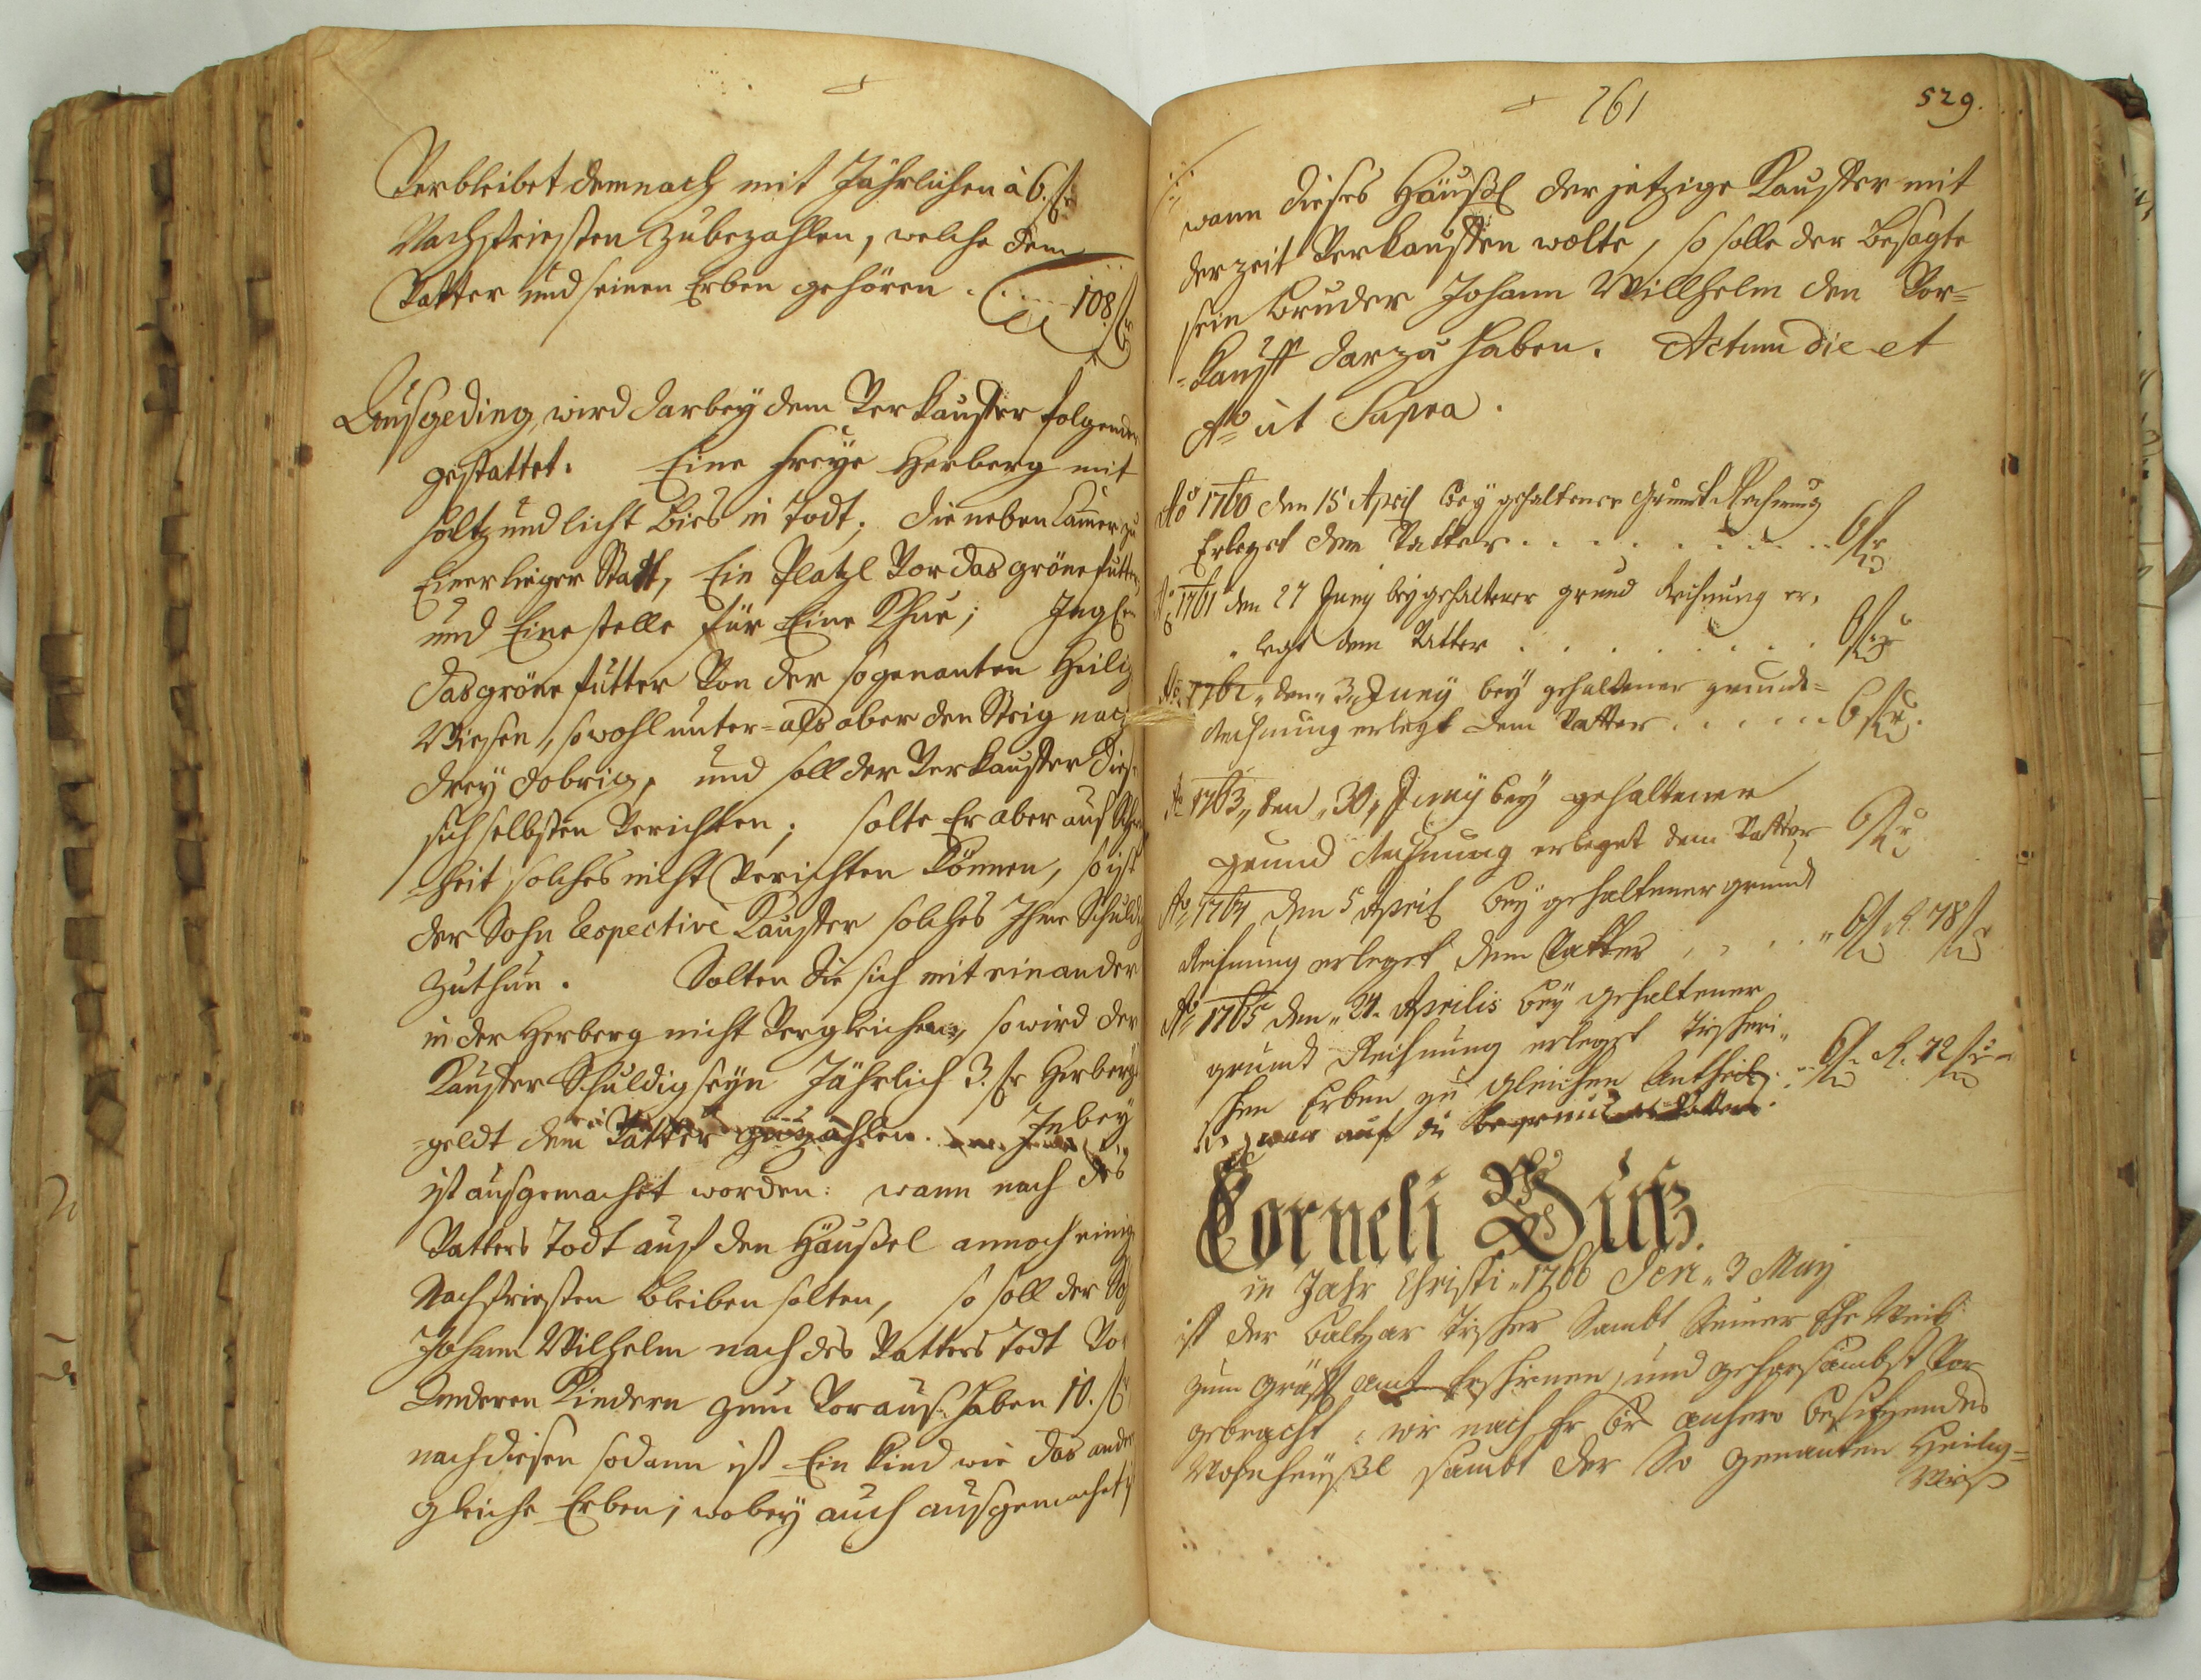 Verbleibet demnach mit Jährlichen à 6. fr
Nachfristen zubezahlen, welche dem
Vatter und seinen Erben gehören . . . . 108 fr
Ausgeding, wird darbey dem Verkauffer folgendes
gestattet. Eine freye Herberg mit
holtz und licht bies in Todt; die neben Cammer zu
Einer lieger Statt, Ein Platzl Vor das gröne futter,
und Eine stelle für Eine Khue;
das gröne futter Von der sogenanten Heilig
Wiesen, sowohl unter= als ober den Steig nach
drey dobrig, und soll der Verkauffer dieses
sich selbsten Verichten; solte Er aber aus
heit solches nicht Verichten können, so ist
der Sohn Respective Kauffer solches Ihme Schuldig
zuthun. Solten Sie sich mit einander
in der Herberg nicht Vergleichen, so wird der
Kauffer Schuldig seyn Jährlich 3. fr Herberg
=geldt dem Vatter zuzahlen. Inbey
ist ausgemachet worden: wann nach des
Vatters Todt auf den Häußel annoch einige
Nachfristen bleiben solten, so soll der
Johann Wilhelm nach des Vatters Todt Vor
Anderen Kindern zum Voraus haben 10. fr
nach diesen sodann ist Ein Kind wie das andere
gleiche Erben; wobey auch ausgemachet
261
529.
wann dieses Häußl der jetzige Kauffer mit
der zeit Verkauffen wolte, so solle der besagte
sein bruder Johann Willhelm den Vor=
=Kauff darzu haben. Actum die et
Ao ut Supra.
Ao 1760 den 15 April bey gehaltener Grund Rechnung
Erleget dem Vatter . . . . . . . . 6 fr
Ao 1761 den 27 Juny bey gehaltener grund Rechnung er,
legt dem Vatter . . . . . . . . 6 fr
Ao 1762 „ den „ 3 „ Juny bey gehaltener grund=
Rechnung erlegt dem Vatter . . . . . . 6 fr.
Ao 1763 „ den „ 30 „ Juny bey gehaltener
grund Rechnung erleget dem Vatter 6 fr
Ao 1764 den 5 April bey gehaltener grund
Rechnung erleget dem Vatter . . . . „ 6 fr R. 78 fr
Ao 1765 den „ 24. Aprilis bey gehaltener
grund Rechnung erleget Tischeri„
schen Erben zu gleichen Antheil . 6 fr R. 72 fr
zwar auf die
Corneli
in Jahr Christi „ 1766 den „ 3 May
ist der Baltzar Tischer Sambt Seiner Ehe Weib
zum amt Erschienen, und gehorsambst Vor
gebracht: wie nach Er bis anhero besitzendes
Wohnheüßl sambt der So genanten Heilig=
Wieß